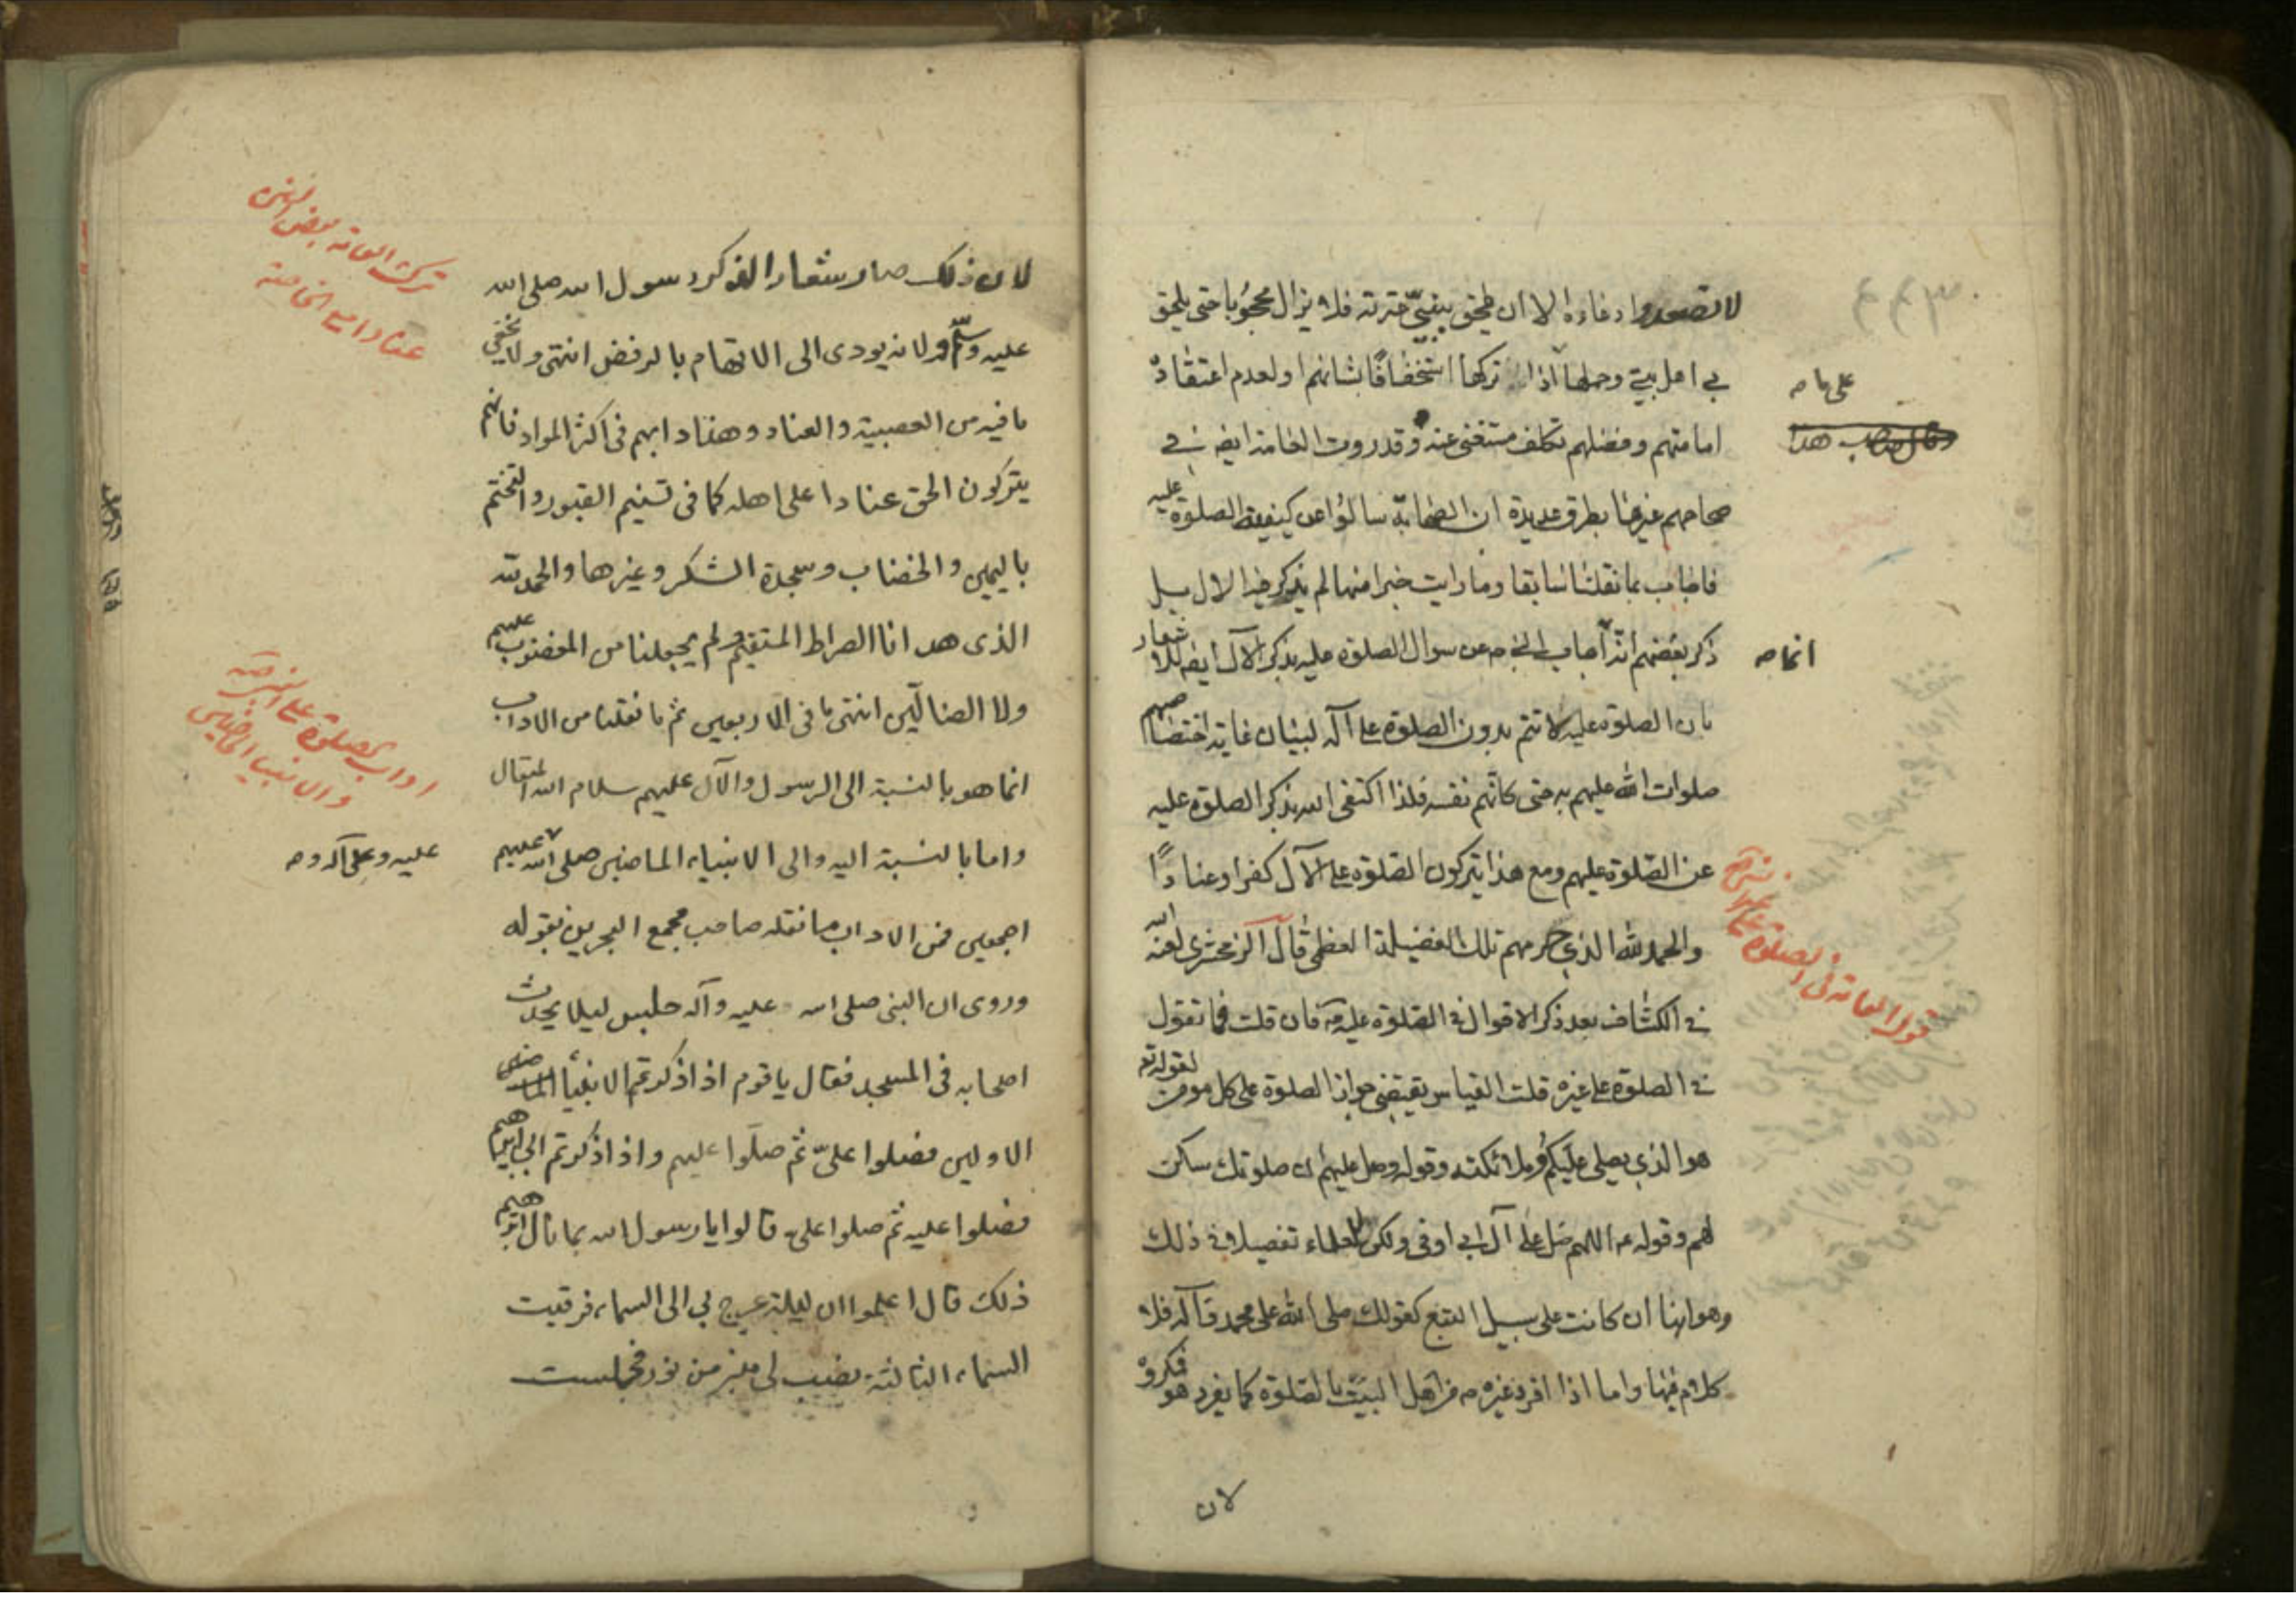 لا تصعدوا دعاءه الا ان يلحق بنبيّ عترته فلا يزال محجوبا حتى يلحق
بي اهل بيتي وحملها اذا تركها استخفافًا بشانهم او لعدم اعتقاده
امامتهم وفضلهم تكلف مستغنى عنه وقد روت العامة ايضا في
صحاحهم غيرها بطرق عديدة ان الصحابة سالوا عن كيفية الصلوة عليه
فاجاب بما نقلنا سابقا وما رايت خبرا منها لم يذكر فيه الال بل
ذكر بعضهم انه اجاب النبي ص عن سوال الصلوة عليه بذكر الآل ايضا
بان الصلوة عليه لا تتم بدون الصلوة على آله لبيان غاية اختصاصهم
صلوات الله عليهم به حتى كانهم نفسه فلذا اكتفى الله بذكر الصلوة عليه
عن الصلوة عليهم ومع هذا يتركون الصلوة على الآل كفرا وعنادًا
والحمد لله الذي حرمهم تلك الفضيلة العظمى قال الزمخشري لعنه الله
في الكشاف بعد ذكر الاقوال في الصلوة عليه فان قلت فما تقول
في الصلوة على غيره قلت القياس يقتضي جواز الصلوة على كل مومن لقوله تع
هو الذي يصلي عليكم وملائكته وقوله وصل عليهم ان صلوتك سكن
لهم وقوله ص اللهم صل على آل ابي اوفى ولكن للعلماء تفصيلا في ذلك
وهو انها ان كانت على سبيل التبع كقولك صلى الله على محمد وآله فلا
كلام فيها واما اذا افرد غيره من اهل البيت بالصلوة كما يفرد هو فمكروه
لان
على ما ص
انما ص
قول العامة في الصلوة على
٤٤٣
لان ذلك صار شعار الذكر رسول الله صلى الله
عليه وسلم ولانه يودى الى الاتهام بالرفض انتهى ولا يخفى
ما فيه من العصبية والعناد وهذا دابهم فى اكثر المواد فانهم
يتركون الحق عنادا على اهله كما فى تسنيم القبور والتختم
باليمين والخضاب وسجدة الشكر وغيرها والحمد لله
الذى هدانا الصراط المستقيم ولم يجعلنا من المغضوب عليهم
ولا الضالّين انتهى ما فى الاربعين ثم ما نقلنا من الاداب
انما هو بالنسبة الى الرسول والآل عليهم سلام الله المتعال
واما بالنسبة اليه والى الانبياء الماضين صلى الله عليهم
اجمعين فمن الاداب ما نقله صاحب مجمع البحرين بقوله
وروى ان النبى صلى الله عليه وآله جلس ليلا يحدث
اصحابه فى المسجد فقال يا قوم اذا ذكرتم الانبياء الماضين
الاولين فصلوا علىّ ثم صلّوا عليهم واذا ذكرتم ابى ابراهيم
فصلوا عليه ثم صلوا على قالوا يا رسول الله بما نال ابرهيم
ذلك قال اعلموا ان ليلة عرج بى الى السماء فرقيت
السماء الثالثة نصب لى منبر من نور فجلست
ترك العامة بعض
عنادا على الخاصة
اداب الصلوة على
والانبيا الماضين
عليه وعلى آله و ص